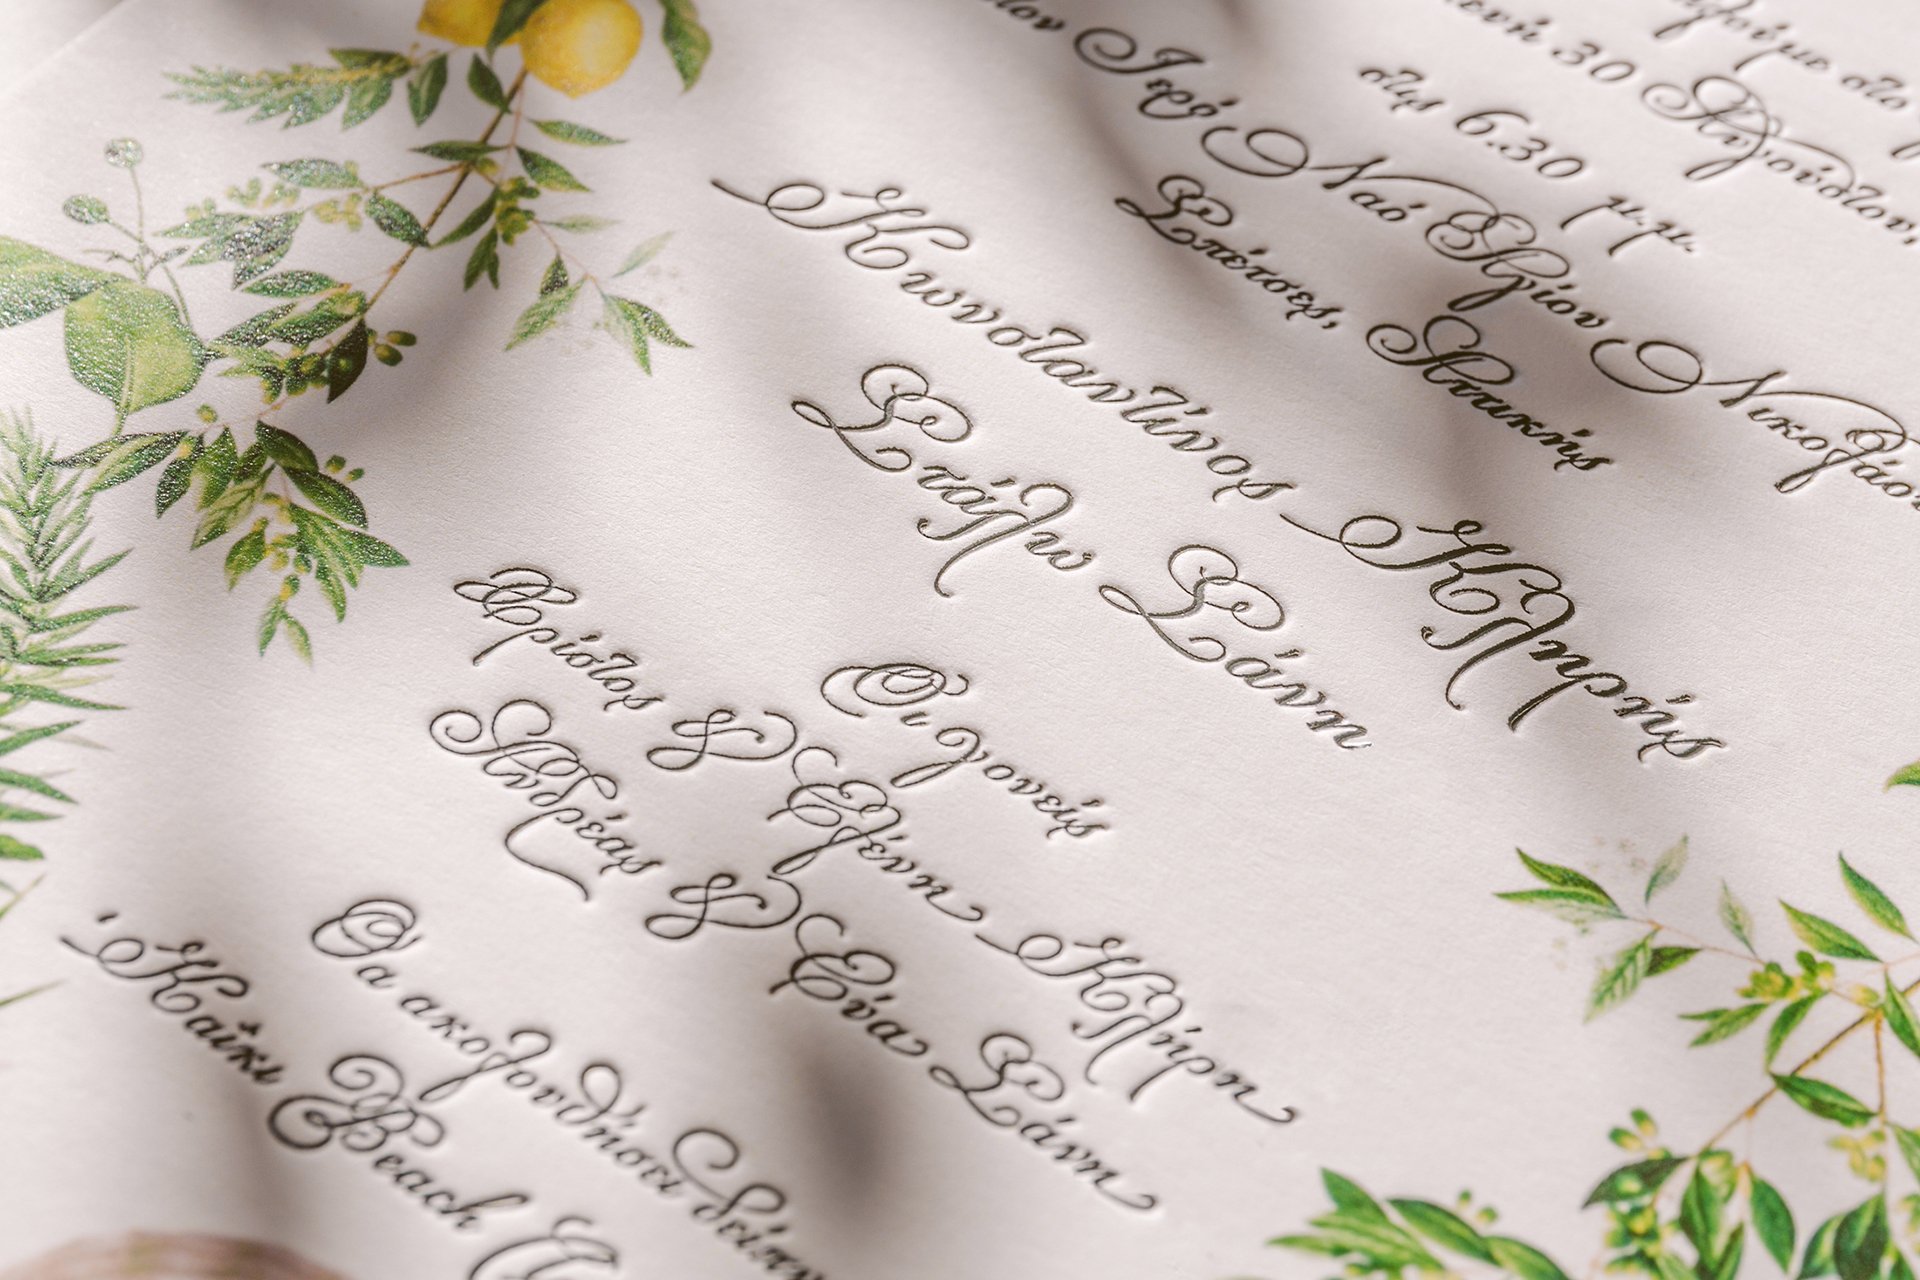 30 Αυγούστου,
στις 6.30 μ.μ.
Ιερό Ναό Αγίου Νικολάου
Σπέτσες, Αττικής
Κωνσταντίνος Κληρής
Στάλω Σάνη
Οι γονείς
Χρίστος & Ελένη Κλήρη
Ανδρέας & Εύα Σάνη
Θα ακολουθήσει δείπνο
Καΐκι Beach